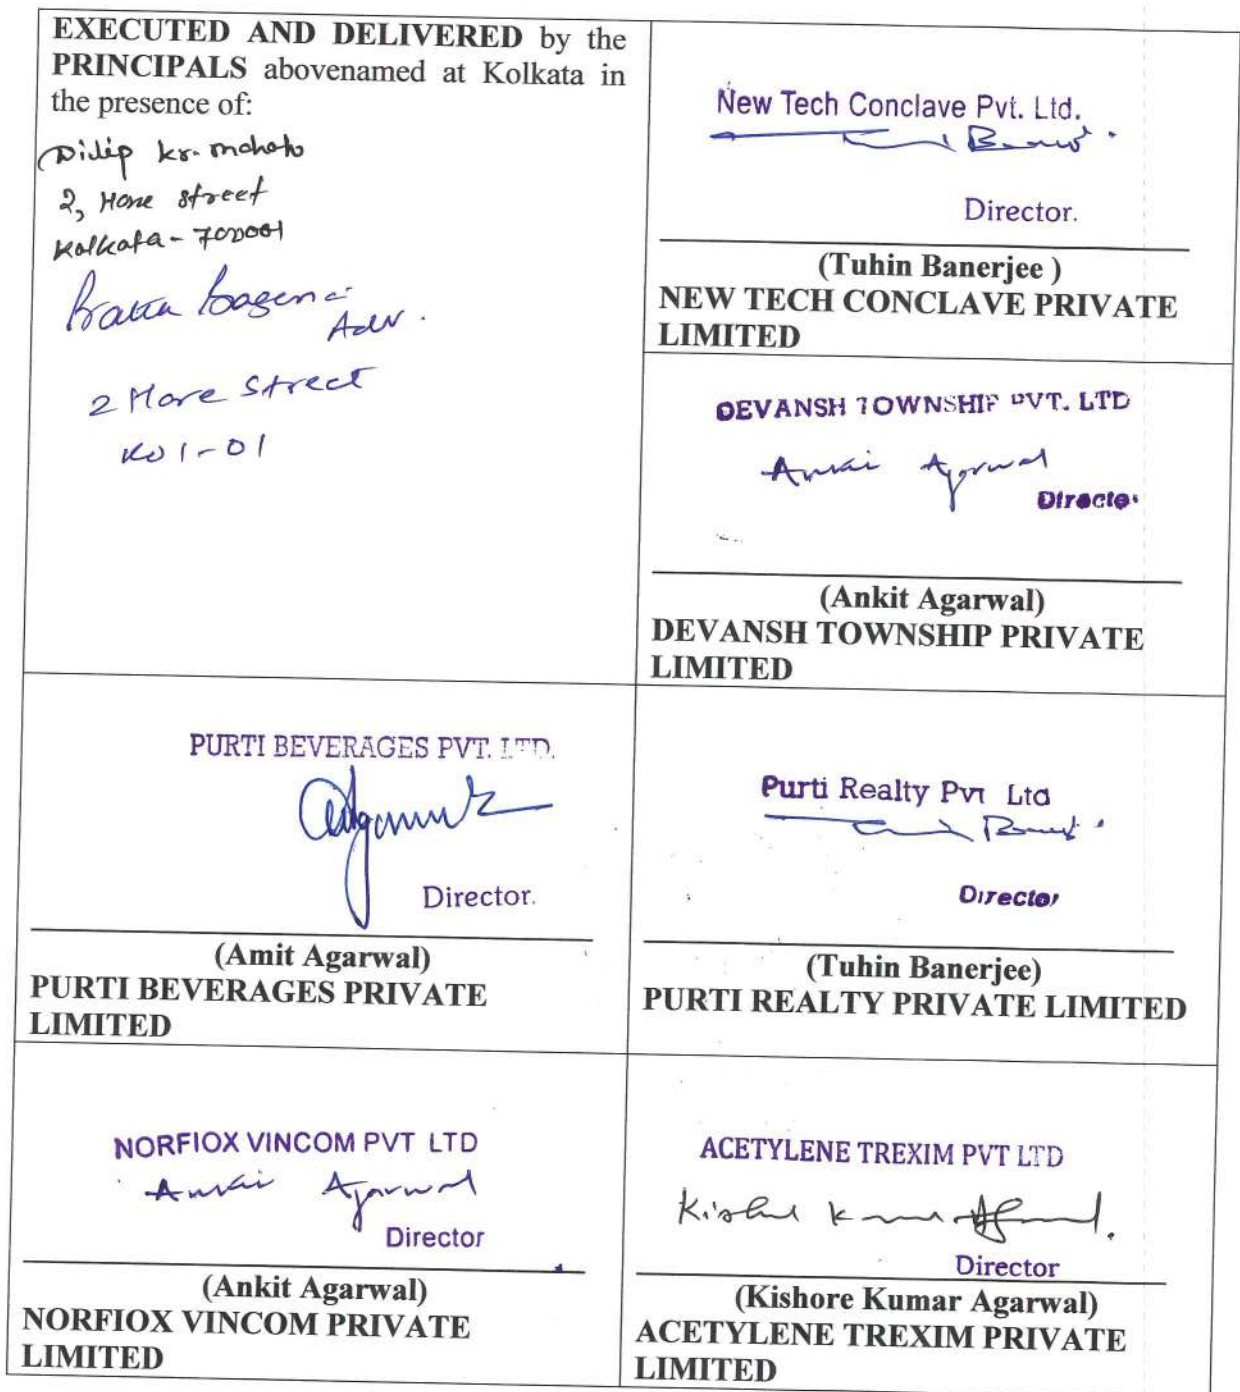 EXECUTED AND DELIVERED by the
PRINCIPALS abovenamed at Kolkata in
the presence of:
Dilip kr. mahato
2, Hare street
Kolkata - 700001
Adv.
2 Hare Street
Kol-01
New Tech Conclave Pvt. Ltd.
Director.
(Tuhin Banerjee )
NEW TECH CONCLAVE PRIVATE
LIMITED
DEVANSH TOWNSHIP PVT. LTD
Ankit Agarwal
Director
(Ankit Agarwal)
DEVANSH TOWNSHIP PRIVATE
LIMITED
PURTI BEVERAGES PVT. LTD.
Director.
(Amit Agarwal)
PURTI BEVERAGES PRIVATE
LIMITED
Purti Realty Pvt Ltd
Director
(Tuhin Banerjee)
PURTI REALTY PRIVATE LIMITED
NORFIOX VINCOM PVT LTD
Ankit Agarwal
Director
(Ankit Agarwal)
NORFIOX VINCOM PRIVATE
LIMITED
ACETYLENE TREXIM PVT LTD
Kishore Kumar Agarwal.
Director
(Kishore Kumar Agarwal)
ACETYLENE TREXIM PRIVATE
LIMITED